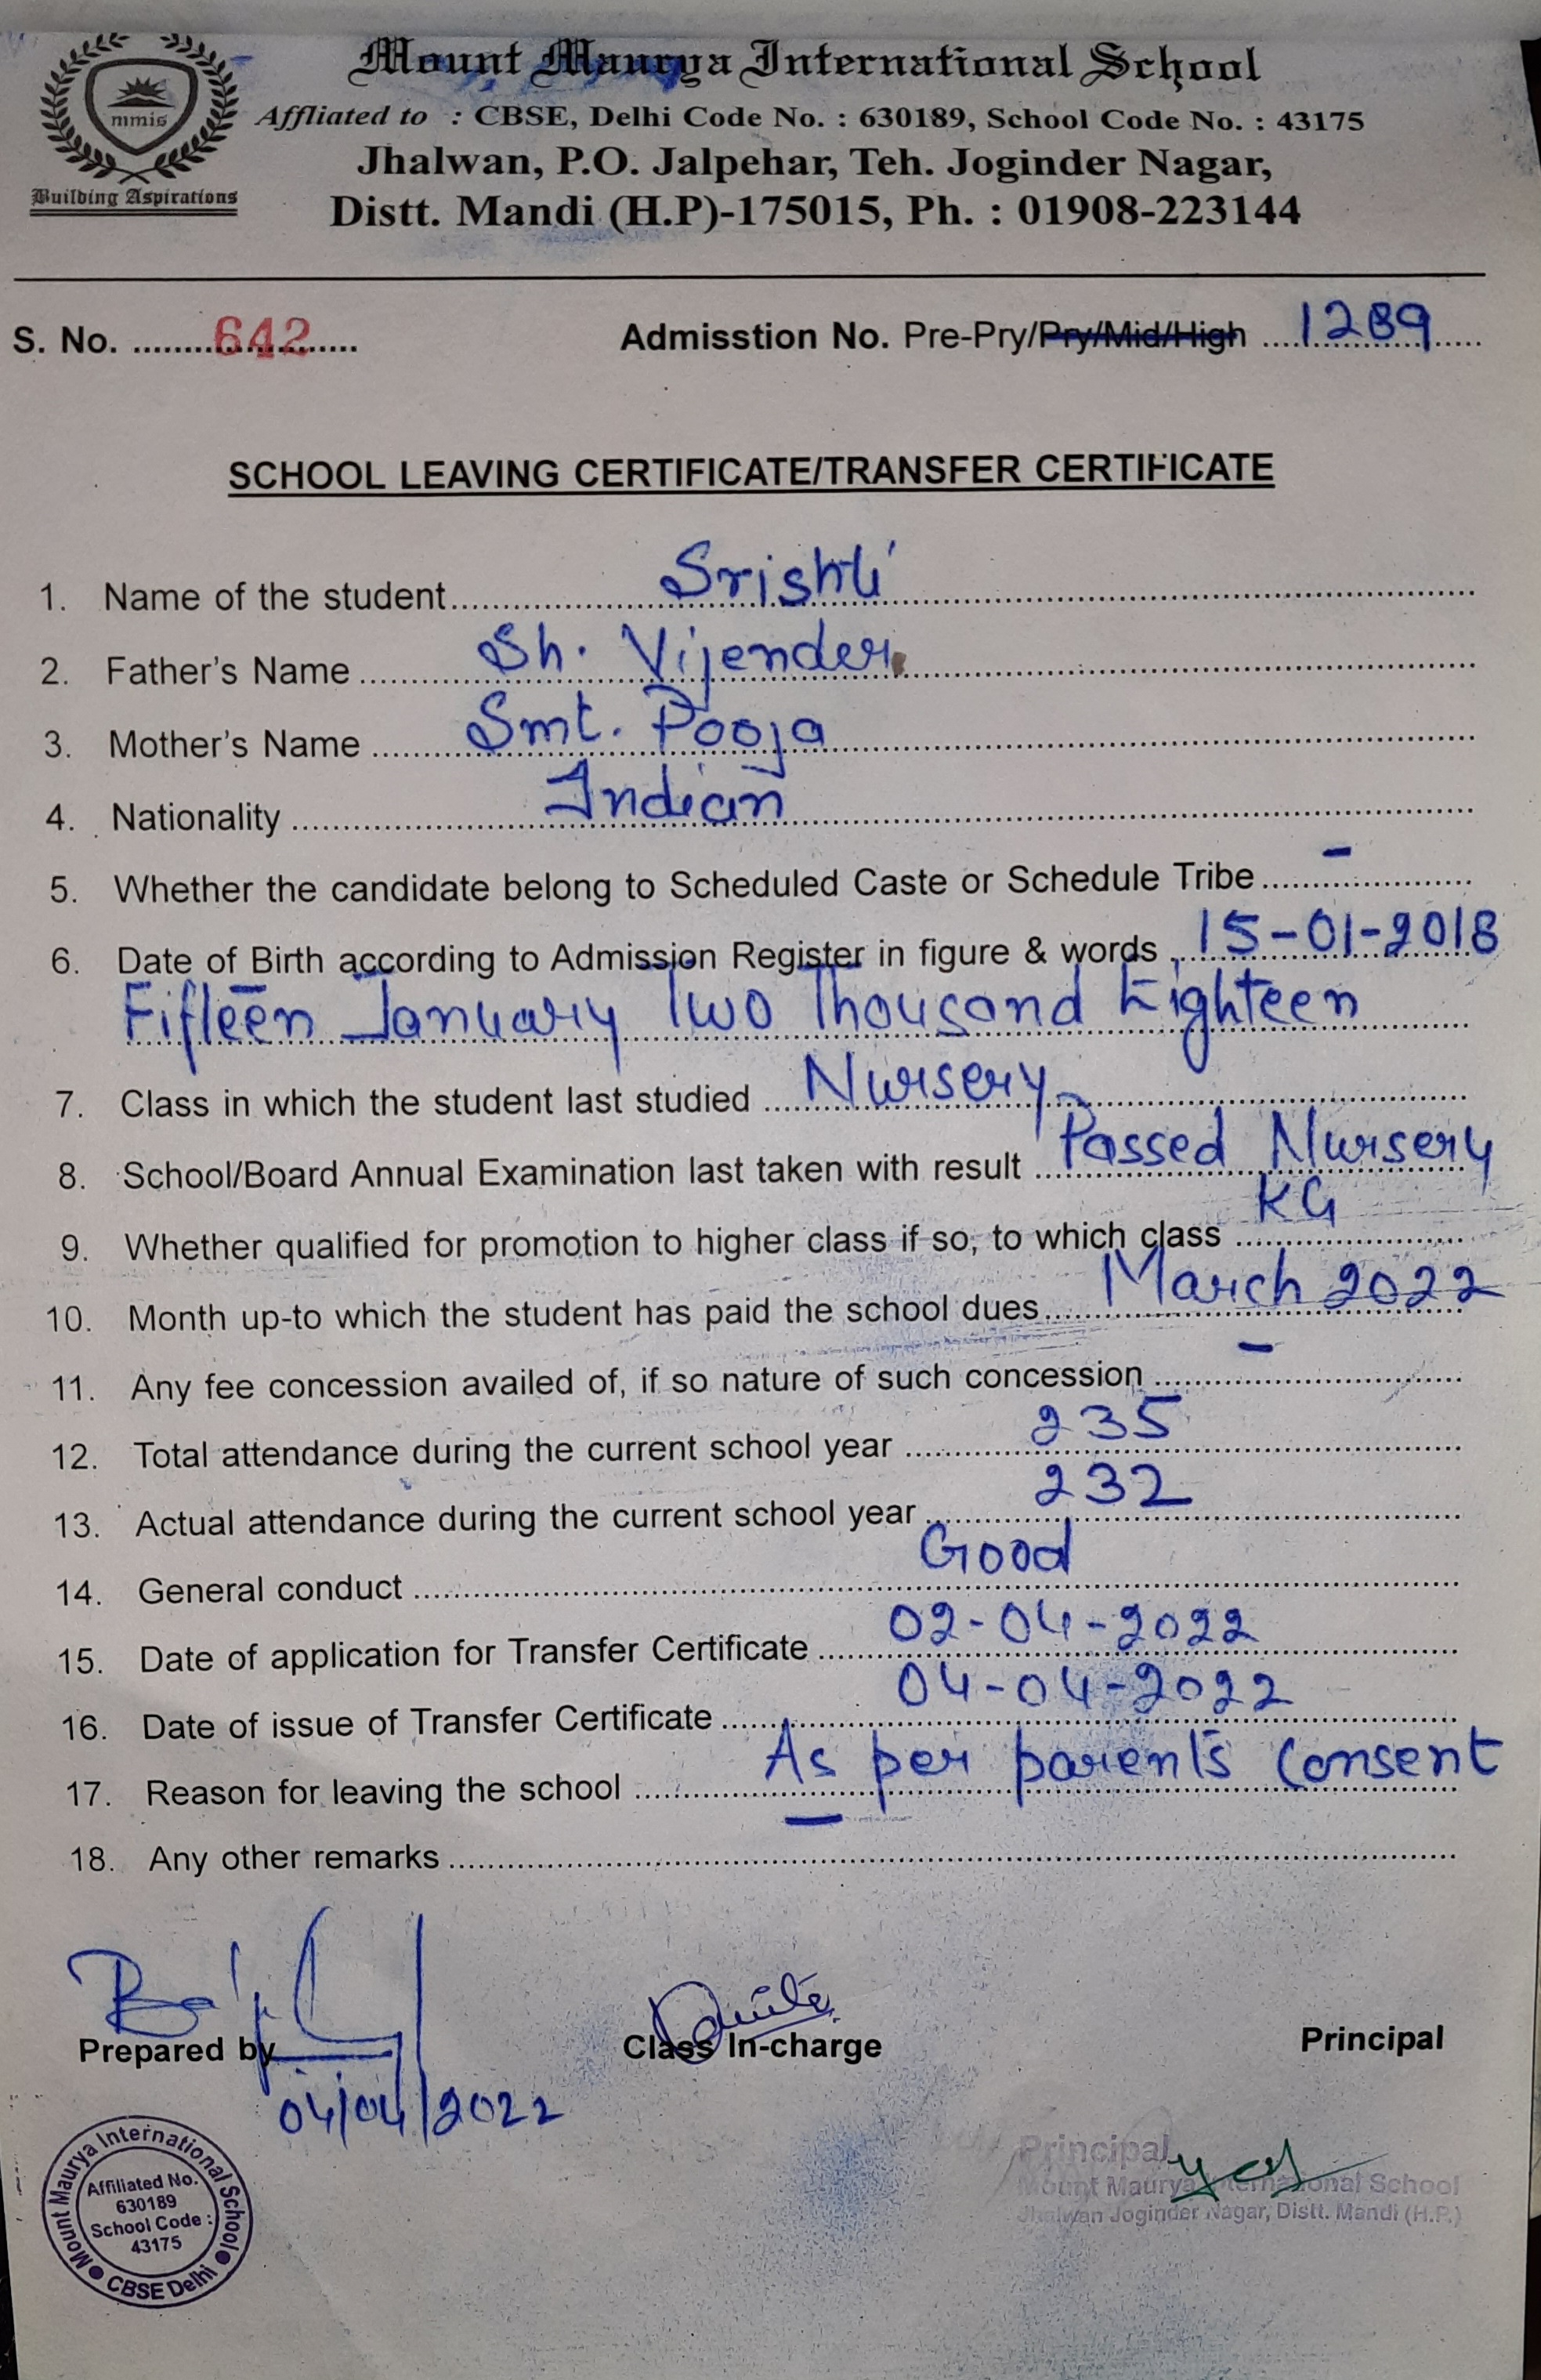 Mount Maurya International School
mmis
Building Aspirations
Affliated to : CBSE, Delhi Code No. : 630189, School Code No. : 43175
Jhalwan, P.O. Jalpehar, Teh. Joginder Nagar,
Distt. Mandi (H.P)-175015, Ph. : 01908-223144
S. No. 642 Admisstion No. Pre-Pry/Pry/Mid/High 1289
SCHOOL LEAVING CERTIFICATE/TRANSFER CERTIFICATE
1. Name of the student Srishti
2. Father's Name Sh. Vijender
3. Mother's Name Smt. Pooja
4. Nationality Indian
5. Whether the candidate belong to Scheduled Caste or Schedule Tribe -
6. Date of Birth according to Admission Register in figure & words 15-01-2018
Fifteen January Two Thousand Eighteen
7. Class in which the student last studied Nursery
8. School/Board Annual Examination last taken with result Passed Nursery
9. Whether qualified for promotion to higher class if so, to which class KG
10. Month up-to which the student has paid the school dues March 2022
11. Any fee concession availed of, if so nature of such concession -
12. Total attendance during the current school year 235
13. Actual attendance during the current school year 232
14. General conduct Good
15. Date of application for Transfer Certificate 02-04-2022
16. Date of issue of Transfer Certificate 04-04-2022
17. Reason for leaving the school As per parent's Consent
18. Any other remarks -
Prepared by Class In-charge Principal
04/04/2022
Mount Maurya International School
Affiliated No.
630189
School Code :
43175
CBSE Delhi
Principal
Mount Maurya International School
Jhalwan Joginder Nagar, Distt. Mandi (H.P.)